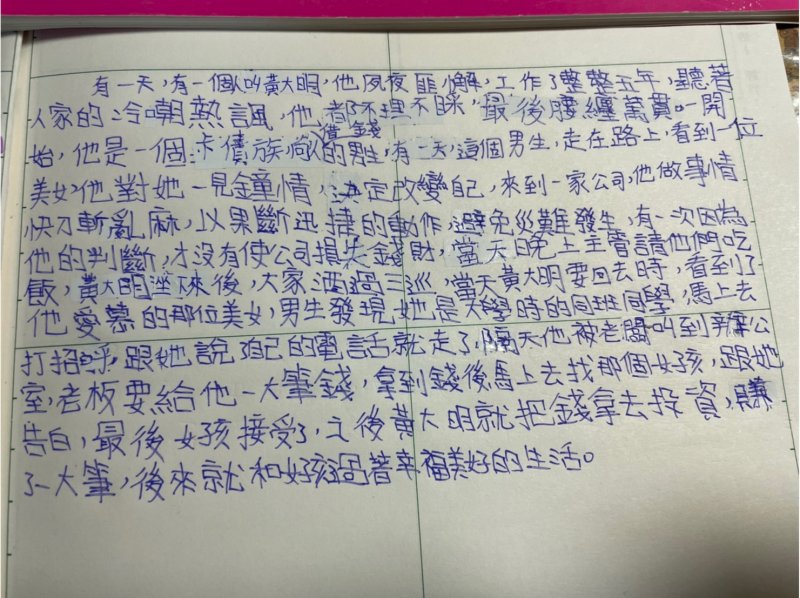 有一天，有一個人叫黃大明，他夙夜匪懈，工作了整整五年，聽著
人家的冷嘲熱諷，他都不理不睬，最後腰纏萬貫。一開
始，他是一個卡債族，欠人債錢的男生，有一天，這個男生，走在路上，看到一位
美女，他對她一見鐘情，決定改變自己，來到一家公司，他做事情
快刀斬亂麻，以果斷迅捷的動作，避免災難發生，有一次因為
他的判斷，才沒有使公司損失錢財，當天晚上主管請他們吃
飯，黃大明坐下來後，大家酒過三巡，當天黃大明要回去時，看到了
他愛慕的那位美女，男生發現她是大學時的同班同學，馬上去
打招呼，跟她說了自己的電話就走了，隔天他被老闆叫到辦公
室，老板要給他一大筆錢，拿到錢後馬上去找那個女孩，跟她
告白，最後女孩接受了，之後黃大明就把錢拿去投資，賺
了一大筆，後來就和女孩過著幸福美好的生活。